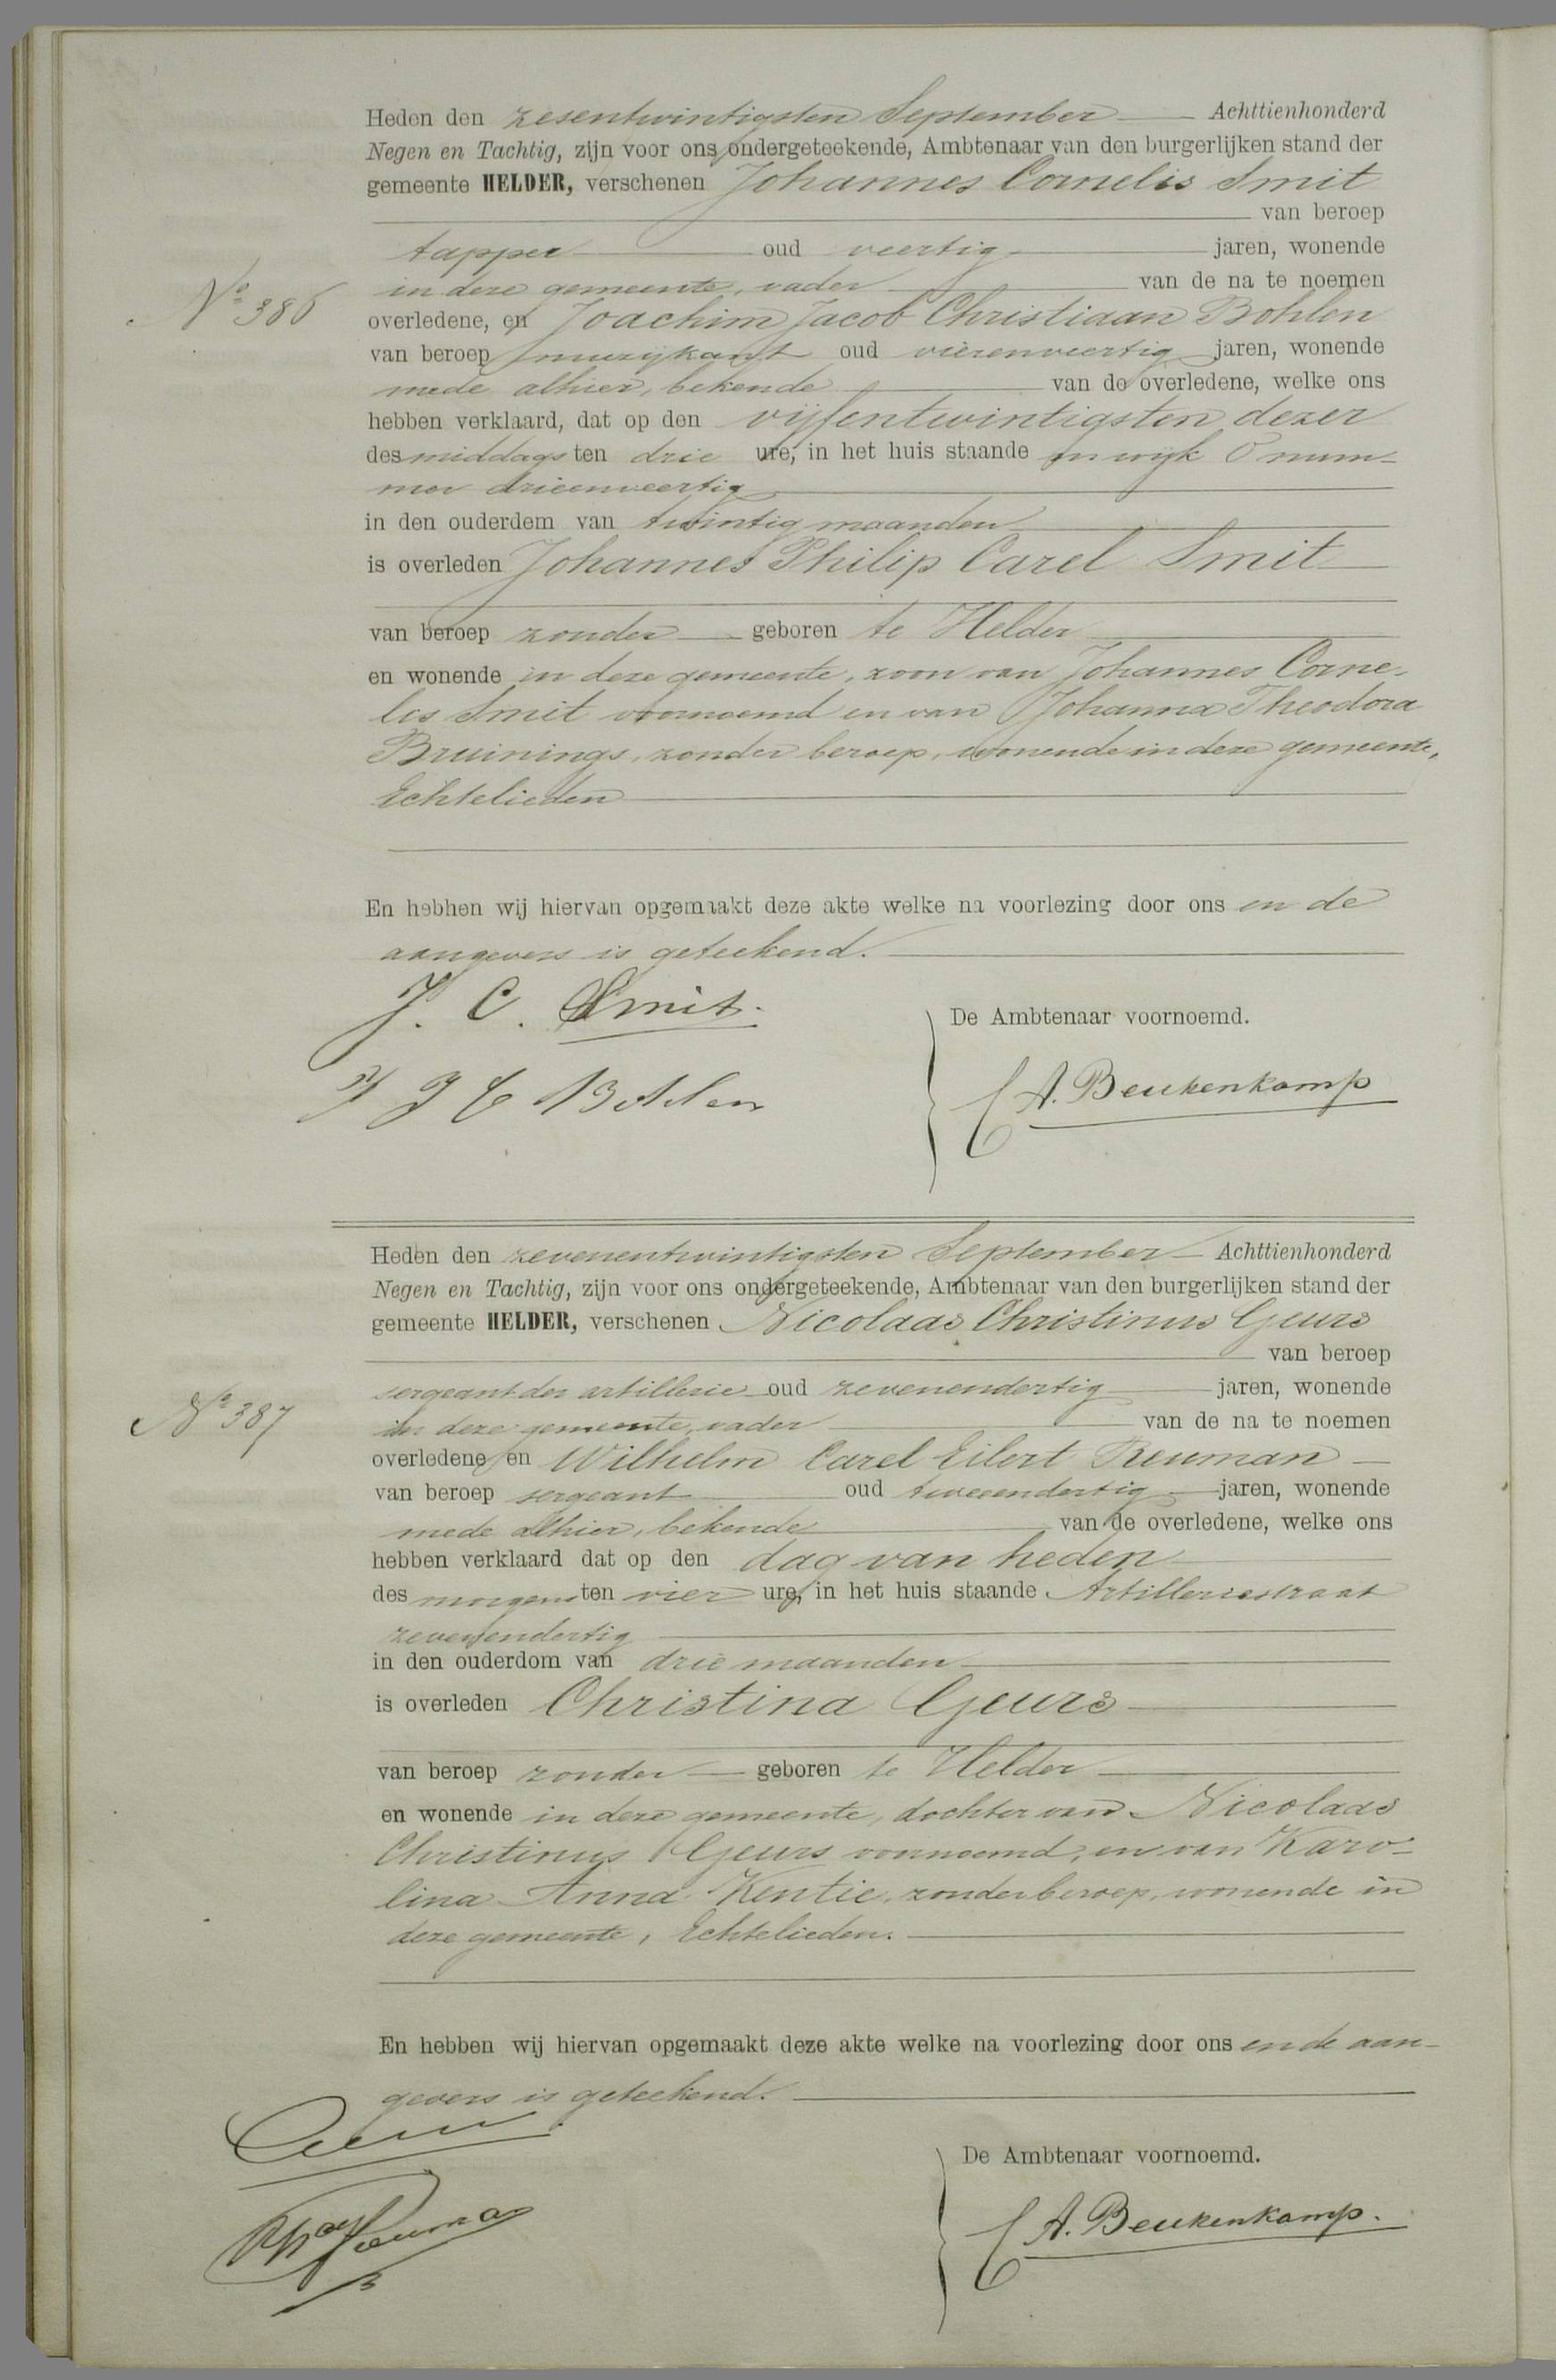 Heden den zesentwintigsten September Achttienhonderd
Negen en Tachtig, zijn voor ons ondergeteekende, Ambtenaar van den burgerlijken stand der
gemeente HELDER, verschenen Johannes Cornelis Smit
van beroep
tapper oud veertig jaren, wonende
in deze gemeente, vader van de na te noemen
No 386
overledene, en Joachim Jacob Christiaan Bohlen
van beroep muzijkant oud vierenveertig jaren, wonende
mede alhier, bekende van de overledene, welke ons
hebben verklaard, dat op den vijfentwintigsten dezer
des middags ten drie ure, in het huis staande in wijk O num-
mer drieenveertig
in den ouderdom van twintig maanden
is overleden Johannes Philip Carel Smit
van beroep zonder geboren te Helder
en wonende in deze gemeente, zoon van Johannes Corne-
lis Smit voornoemd en van Johanna Theodora
Bruinings, zonder beroep, wonende in deze gemeente,
Echtelieden
En hebben wij hiervan opgemaakt deze akte welke na voorlezing door ons en de
aangevers is geteekend.
J. C. Smit.
De Ambtenaar voornoemd.
J J C Bohlen
A. Beukenkamp
Heden den zevenentwintigsten September Achttienhonderd
Negen en Tachtig, zijn voor ons ondergeteekende, Ambtenaar van den burgerlijken stand der
gemeente HELDER, verschenen Nicolaas Christinus Geurs
van beroep
sergeant der artillerie oud zevenendertig jaren, wonende
No 387
in deze gemeente, vader van de na te noemen
overledene en Wilhelm Carel Eilert Reuman
van beroep sergeant oud tweeendertig jaren, wonende
mede alhier, bekende van de overledene, welke ons
hebben verklaard dat op den dag van heden
des morgens ten vier ure, in het huis staande Artilleriestraat
zevenendertig
in den ouderdom van drie maanden
is overleden Christina Geurs
van beroep zonder geboren te Helder
en wonende in deze gemeente, dochter van Nicolaas
Christinus Geurs voornoemd, en van Karo-
lina Anna Kentie, zonder beroep, wonende in
deze gemeente, Echtelieden.
En hebben wij hiervan opgemaakt deze akte welke na voorlezing door ons en de aan-
gevers is geteekend.
De Ambtenaar voornoemd.
A. Beukenkamp.